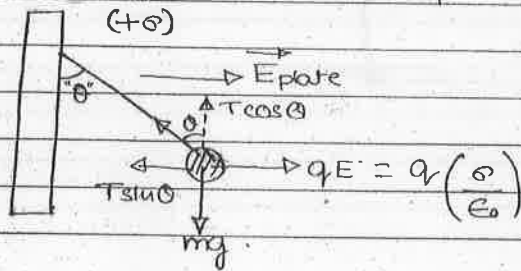 (+σ)
"θ"
E plate
Tcosθ
θ
Tsinθ
qE = q(σ/ε₀)
mg